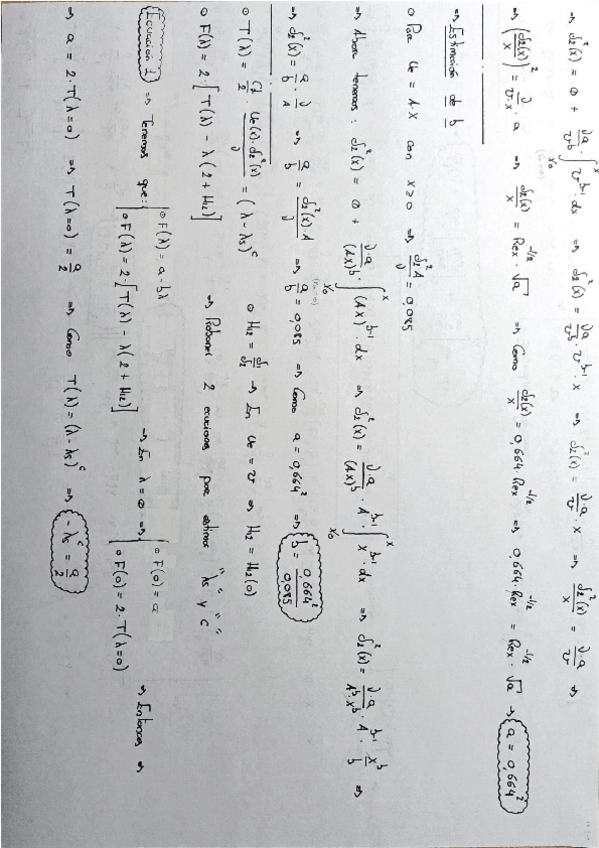 ⇒ δ₂²(x) = 0 + ν·a/v^b · ∫_{x₀}^{x} v^{b-1} dx ⇒ δ₂²(x) = ν·a/v^b · v^{b-1} · x ⇒ δ₂²(x) = ν·a/v · x ⇒ δ₂²(x)/x = ν·a/v ⇒
(x₀=0)
⇒ (δ₂(x)/x)² = ν/(v·x) · a ⇒ δ₂(x)/x = Rex^{-1/2} · √a ⇒ Como δ₂(x)/x = 0,664·Rex^{-1/2} ⇒ 0,664·Rex^{-1/2} = Rex^{-1/2} · √a → a = 0,664²
⇒ Estimación de b
o Para Ue = A·X con x≥0 ⇒ δ₂²A/ν = 0,085
⇒ Ahora tenemos: δ₂²(x) = 0 + ν·a/(Ax)^b · ∫_{x₀}^{x} (Ax)^{b-1} · dx ⇒ δ₂²(x) = ν·a/(Ax)^b · A^{b-1} · ∫_{x₀}^{x} x^{b-1} · dx ⇒ δ₂²(x) = ν·a/(A^b·x^b) · A^{b-1} · x^b/b ⇒
(x₀=0)
⇒ δ₂²(x) = a/b · ν/A ⇒ a/b = δ₂²(x)·A/ν ⇒ a/b = 0,085 ⇒ Como a = 0,664² ⇒ b = 0,664²/0,085
o T(λ) = Cf/2 · Ue(x)·δ₂(x)/ν = (λ-λs)^c o H₁₂ = δ₁/δ₂ → En Ue = v ⇒ H₁₂ = H₁₂(0)
o F(λ) = 2·[T(λ) - λ(2+H₁₂)] ⇒ 2 ecuaciones para estimar "λs" y "c"
Ecuación 1 ⇒ Tenemos que: o F(λ) = a - bλ ⇒ En λ = 0 ⇒ o F(0) = a ⇒ Entonces ⇒
o F(λ) = 2·[T(λ) - λ(2+H₁₂)] o F(0) = 2·T(λ=0)
⇒ a = 2·T(λ=0) ⇒ T(λ=0) = a/2 ⇒ Como T(λ) = (λ-λs)^c ⇒ -λs^c = a/2